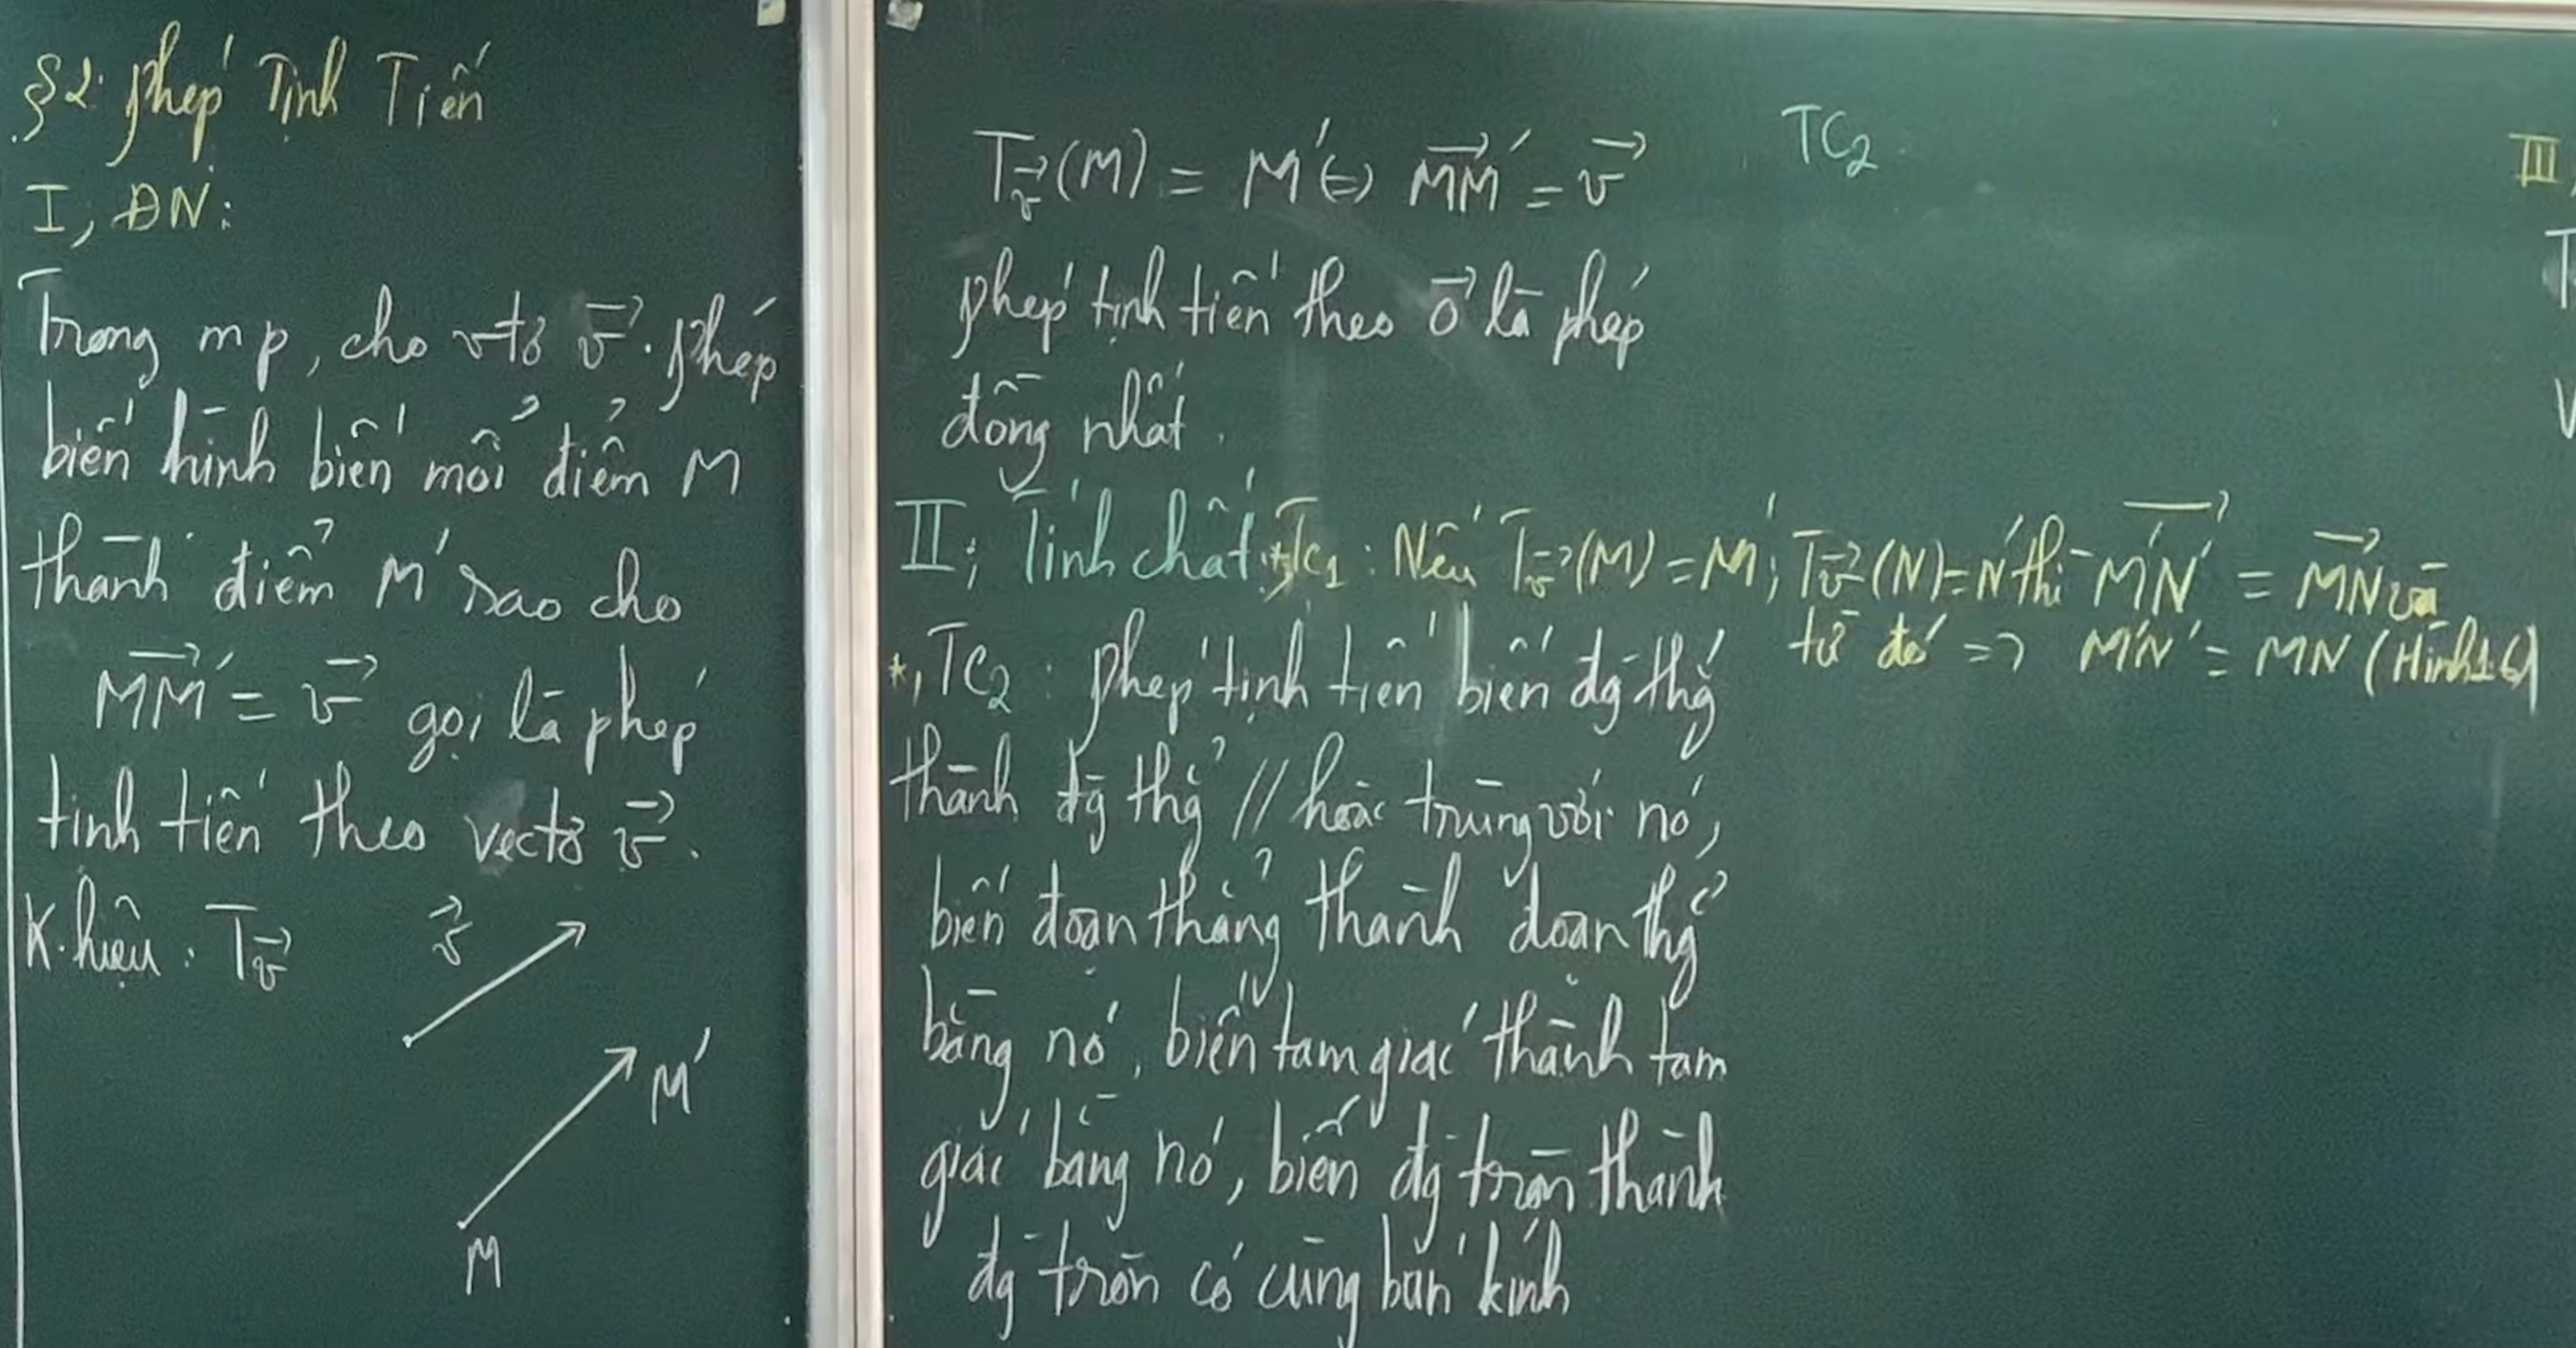 §2: Phép Tịnh Tiến
I, ĐN:
Trong mp, cho vtơ v⃗. Phép
biến hình biến mỗi điểm M
thành điểm M' sao cho
MM'⃗ = v⃗ gọi là phép
tịnh tiến theo vectơ v⃗.
K.hiệu: Tv⃗
v⃗
M'
M
Tv⃗(M) = M' ⇔ MM'⃗ = v⃗
phép tịnh tiến theo 0⃗ là phép
đồng nhất.
II; Tính chất: *, TC1: Nếu Tv⃗(M) = M'; Tv⃗(N) = N' thì M'N'⃗ = MN⃗ và
từ đó => M'N' = MN (Hình 1.6)
*, TC2: Phép tịnh tiến biến đg thg
thành đg thg // hoặc trùng với nó,
biến đoạn thẳng thành đoạn thg
bằng nó, biến tam giác thành tam
giác bằng nó, biến đg tròn thành
đg tròn có cùng bán kính
TC2
III
T
V